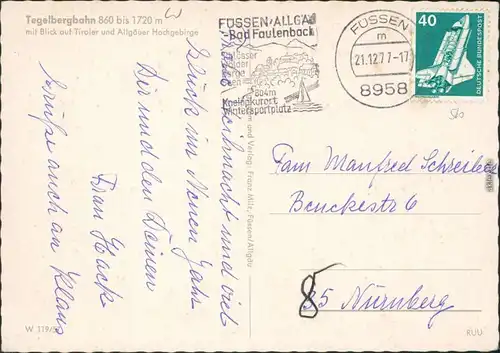 Tegelbergbahn 860 bis 1720 m
mit Blick auf Tiroler und Allgäuer Hochgebirge
FÜSSEN/ALLGÄU
-Bad Faulenbach
804m
Kneippkurort
Wintersportplatz
FÜSSEN
m
21.12.77-17
8958
40
DEUTSCHE BUNDESPOST
Weihnacht und viel
Glück im Neuen Jahr
Dir und den Deinen
Frau Hack
Grüße auch an Klaus
und Verlag: Franz Milz, Füssen/Allgäu
Fam Manfred Schreiber
Benckestr 6
85 Nürnberg
W 119/5
RUU